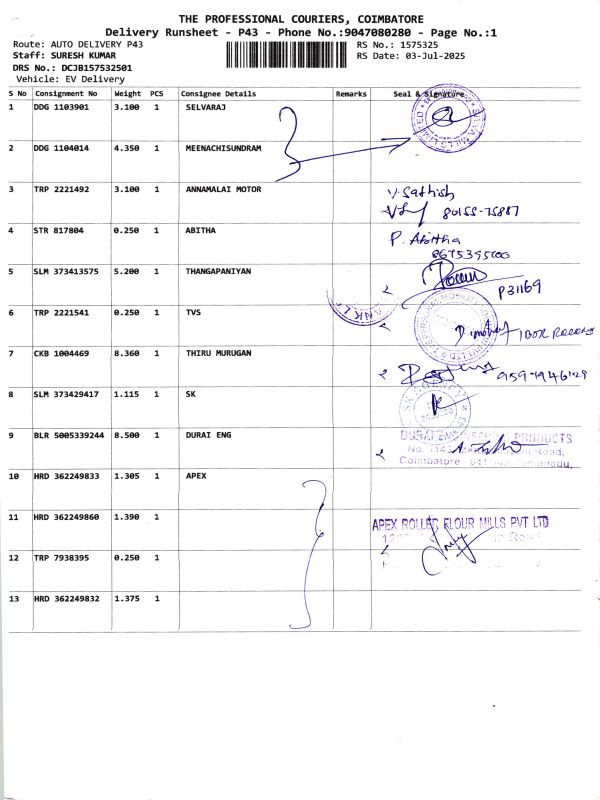 THE PROFESSIONAL COURIERS, COIMBATORE
Delivery Runsheet - P43 - Phone No.:9047080280 - Page No.:1
Route: AUTO DELIVERY P43
RS No.: 1575325
Staff: SURESH KUMAR
RS Date: 03-Jul-2025
DRS No.: DCJB157532501
Vehicle: EV Delivery
S No Consignment No Weight PCS Consignee Details Remarks Seal & Signature
1 DDG 1103901 3.100 1 SELVARAJ
2 DDG 1104014 4.350 1 MEENACHISUNDRAM
3 TRP 2221492 3.100 1 ANNAMALAI MOTOR V. Sathish
80155-75887
4 STR 817804 0.250 1 ABITHA P. Abitha
5 SLM 373413575 5.200 1 THANGAPANIYAN P31169
6 TRP 2221541 0.250 1 TVS
7 CKB 1004469 8.360 1 THIRU MURUGAN
8 SLM 373429417 1.115 1 SK
9 BLR 5005339244 8.500 1 DURAI ENG DURAI ENG PRODUCTS
Road,
Coimbatore
10 HRD 362249833 1.305 1 APEX
11 HRD 362249860 1.390 1 APEX ROLLER FLOUR MILLS PVT LTD
12 TRP 7938395 0.250 1
13 HRD 362249832 1.375 1